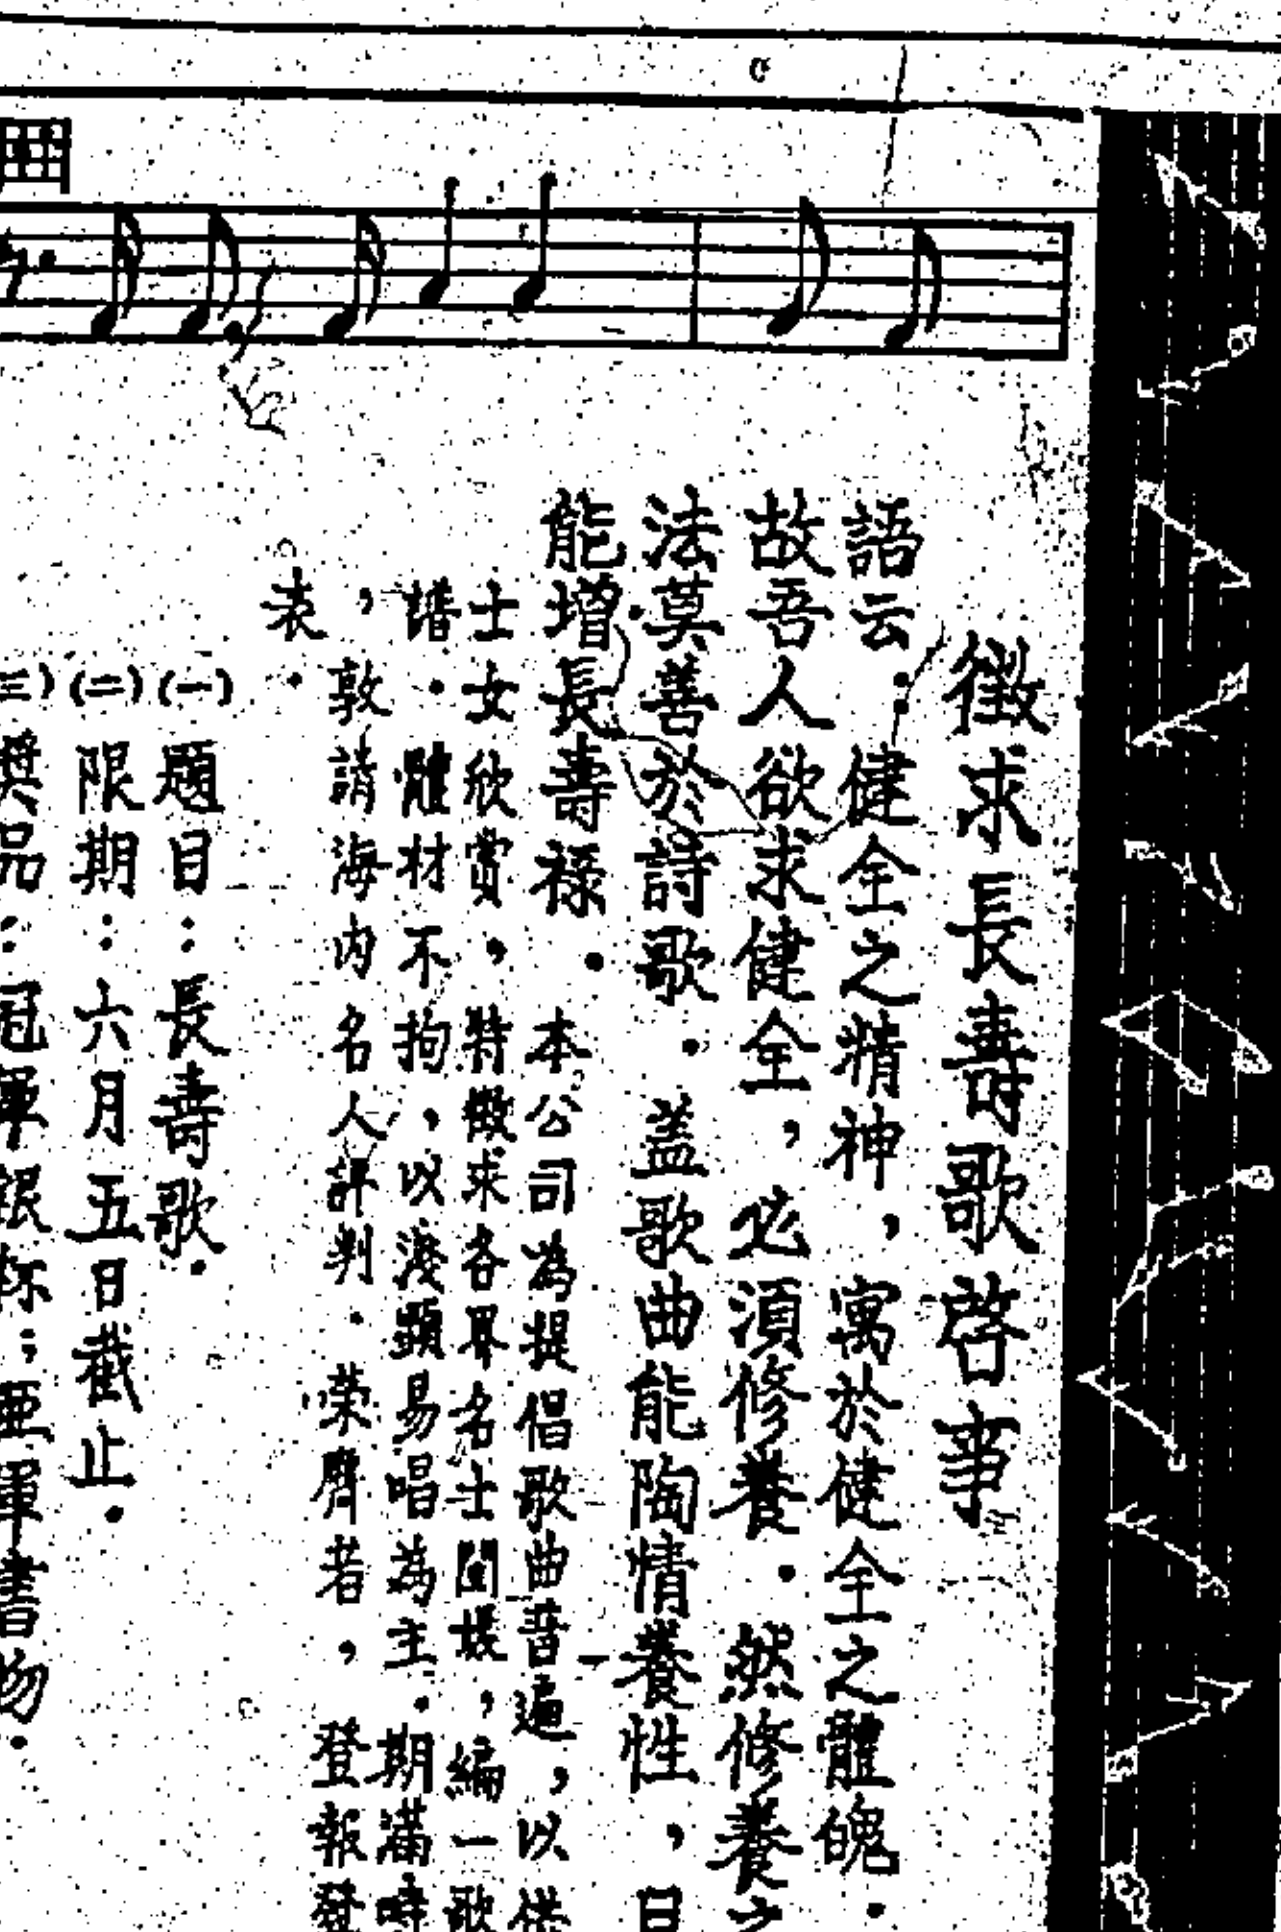 徵求長壽歌啓事
語云．健全之精神，寓於健全之體魄．
故吾人欲求健全，必須修養．然修養之
法莫善於詩歌．蓋歌曲能陶情養性，且
能增長壽祿．本公司為提倡歌曲普遍，以供
士女欣賞，特徵求各界名士閨媛，編一歌
譜．體材不拘，以淺顯易唱為主．期滿時
，敦請海內名人評判．榮膺者，登報發
表．
(一)題目：長壽歌．
(二)限期：六月五日截止．
三)獎品：冠軍銀杯；亞軍書物．